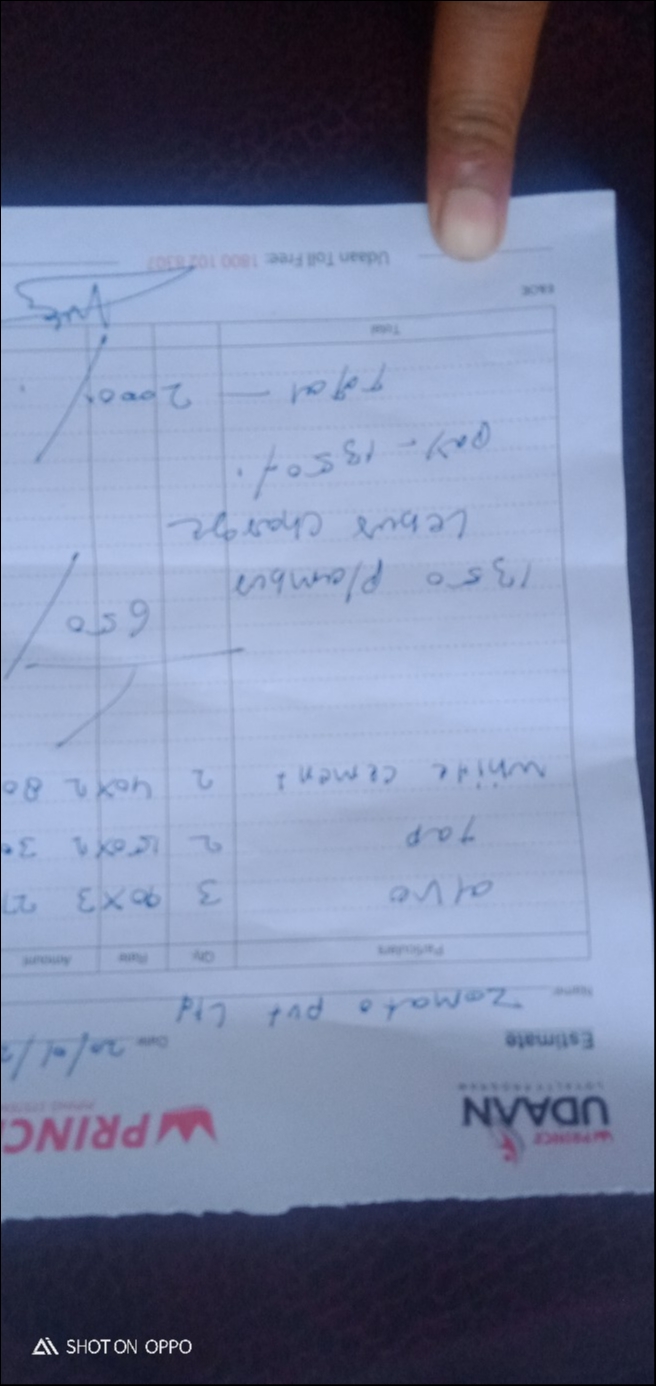 PRINCE
UDAAN
LOYALTY PROGRAM
PRINC
PIPING SYSTEMS
Estimate
Date 20/01/2
Name Zomato pvt Ltd
Particulars Qty. Rate Amount
alve 3 90x3 27
Tap 2 150x2 30
white cement 2 40x2 80
650
1350 Plambur
Lebur charge
pay - 1350/.
Total — 2000
Total
E&OE
Udaan Toll Free: 1800 102 8307
SHOT ON OPPO